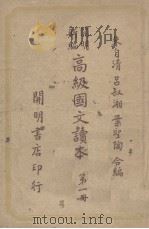 朱自清 呂叔湘 葉聖陶 合編
開明
新編
高級國文讀本 第一冊
開明書店印行